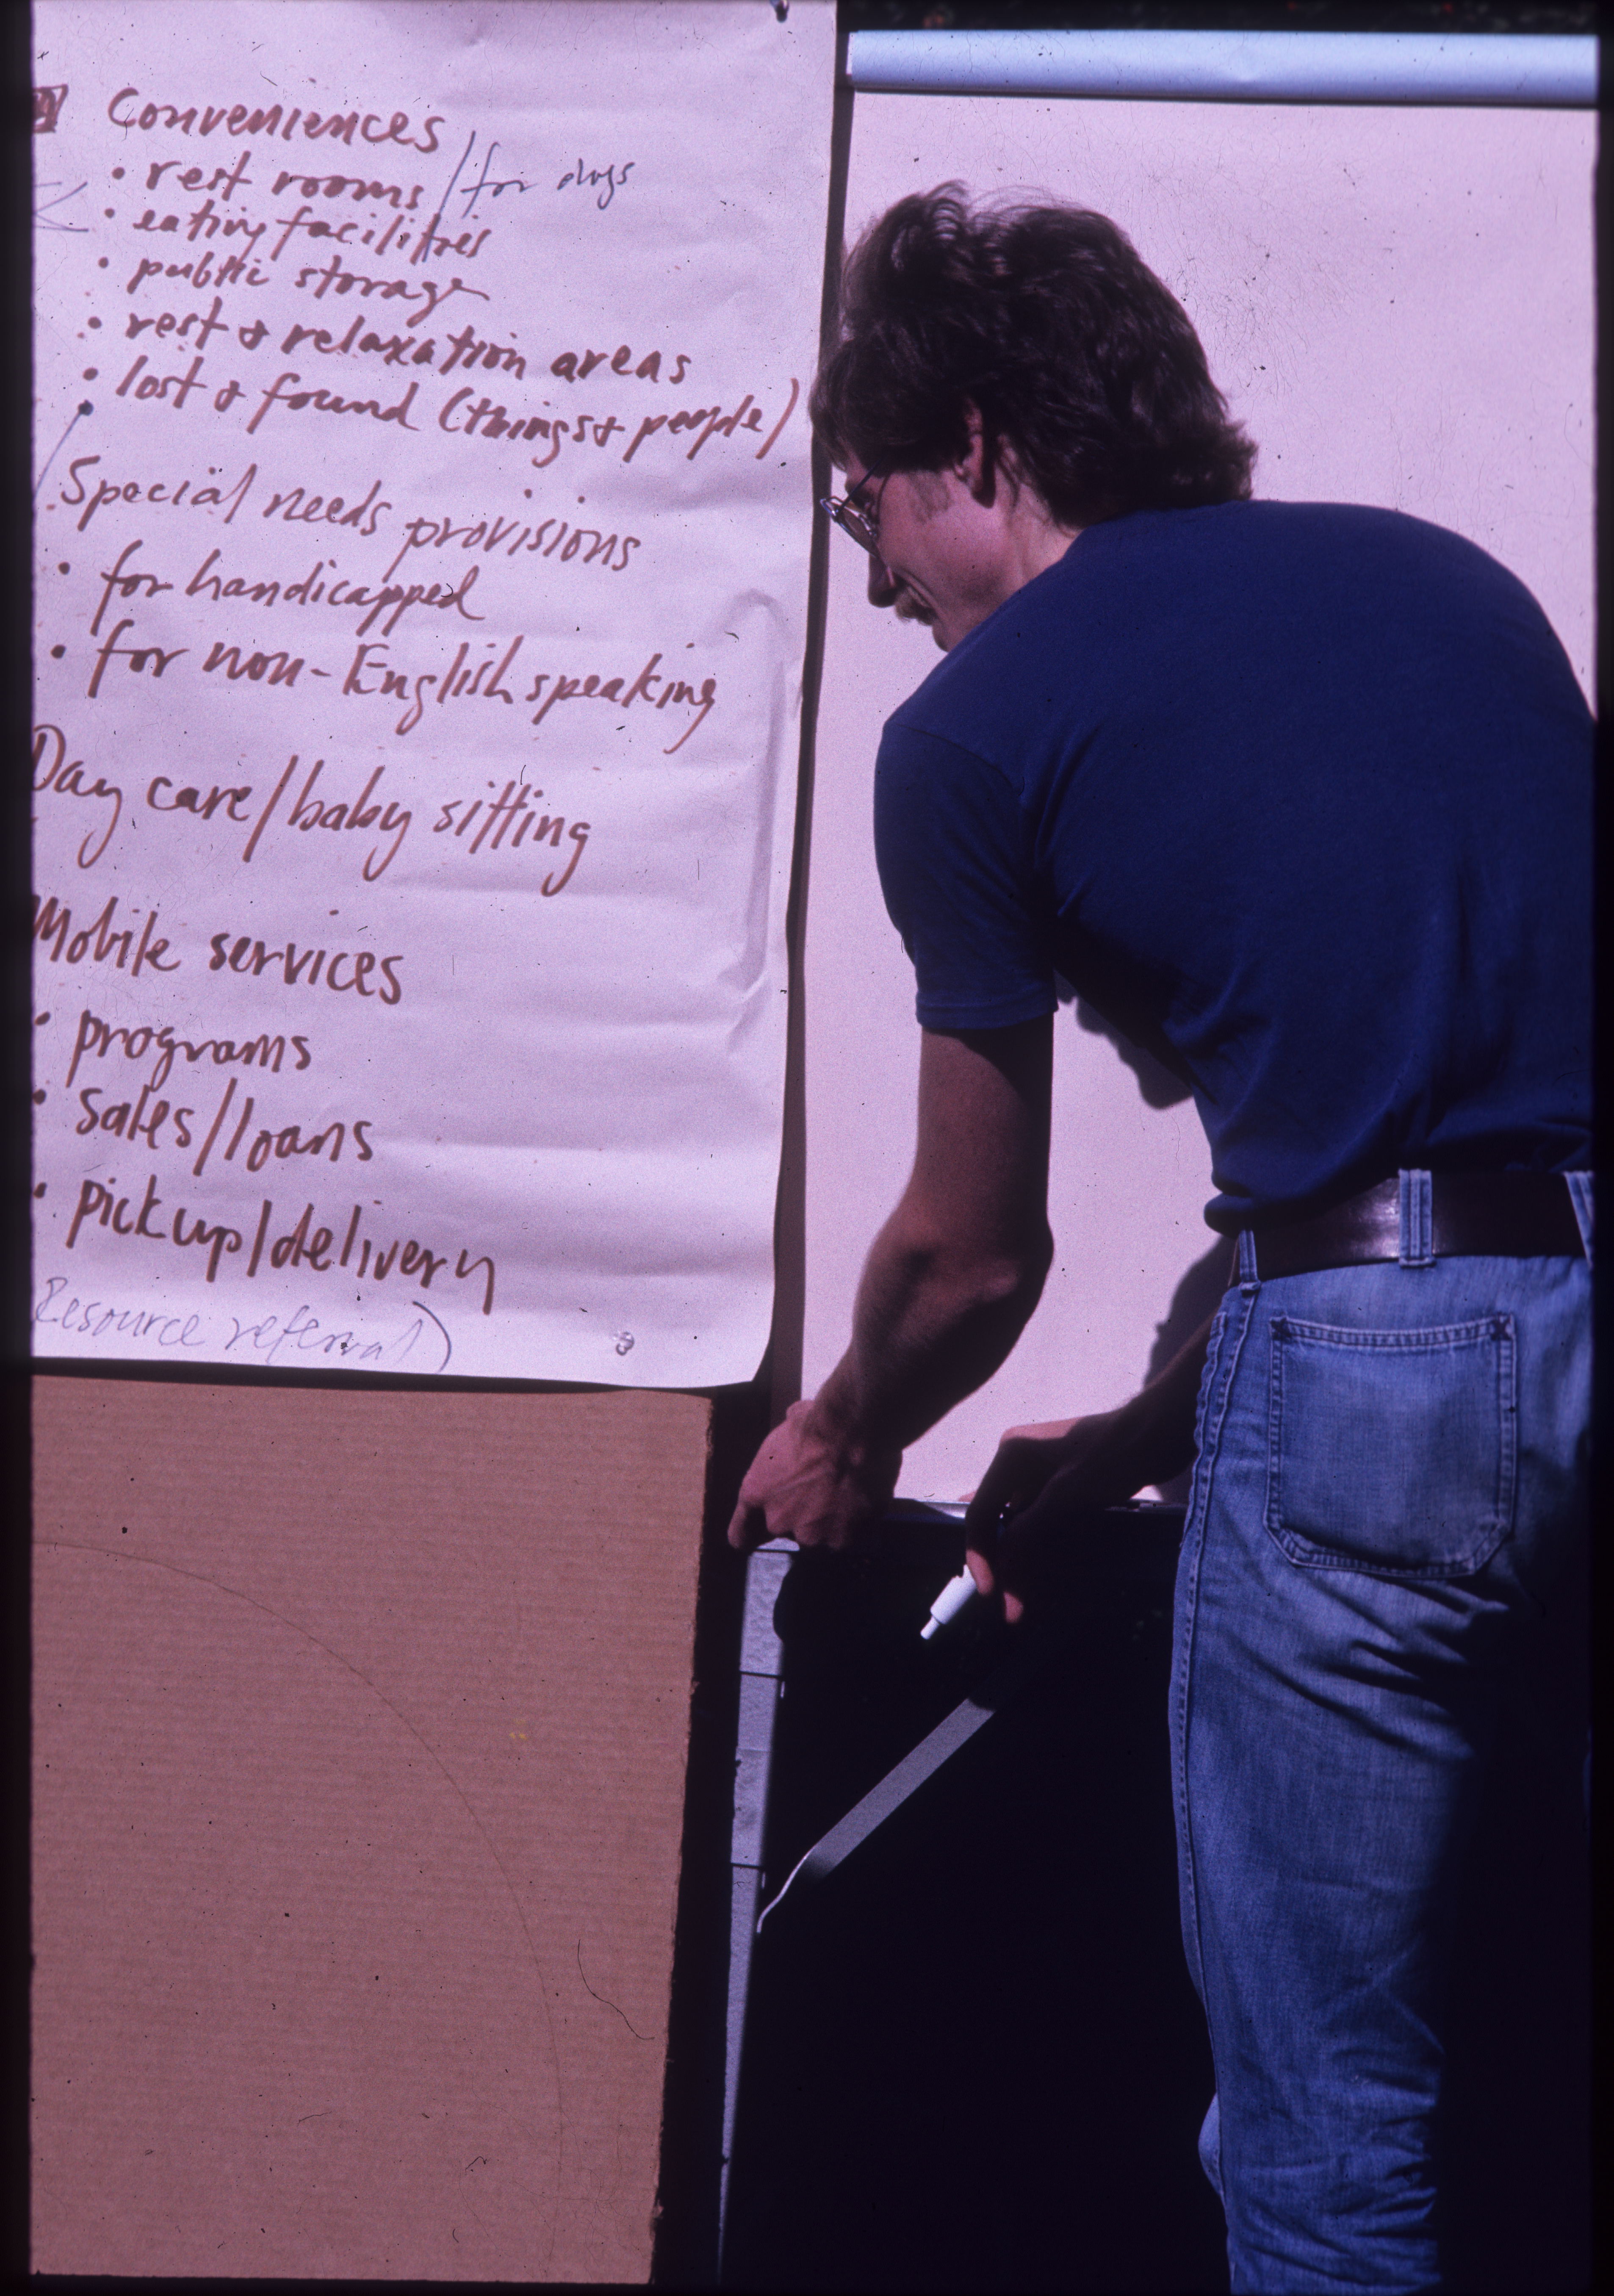 Conveniences
• rest rooms / for dogs
• eating facilities
• public storage
• rest & relaxation areas
• lost & found (things & people)
Special needs provisions
• for handicapped
• for non-English speaking
Day care/baby sitting
Mobile services
• programs
• sales/loans
• pickup/delivery
Resource referral)